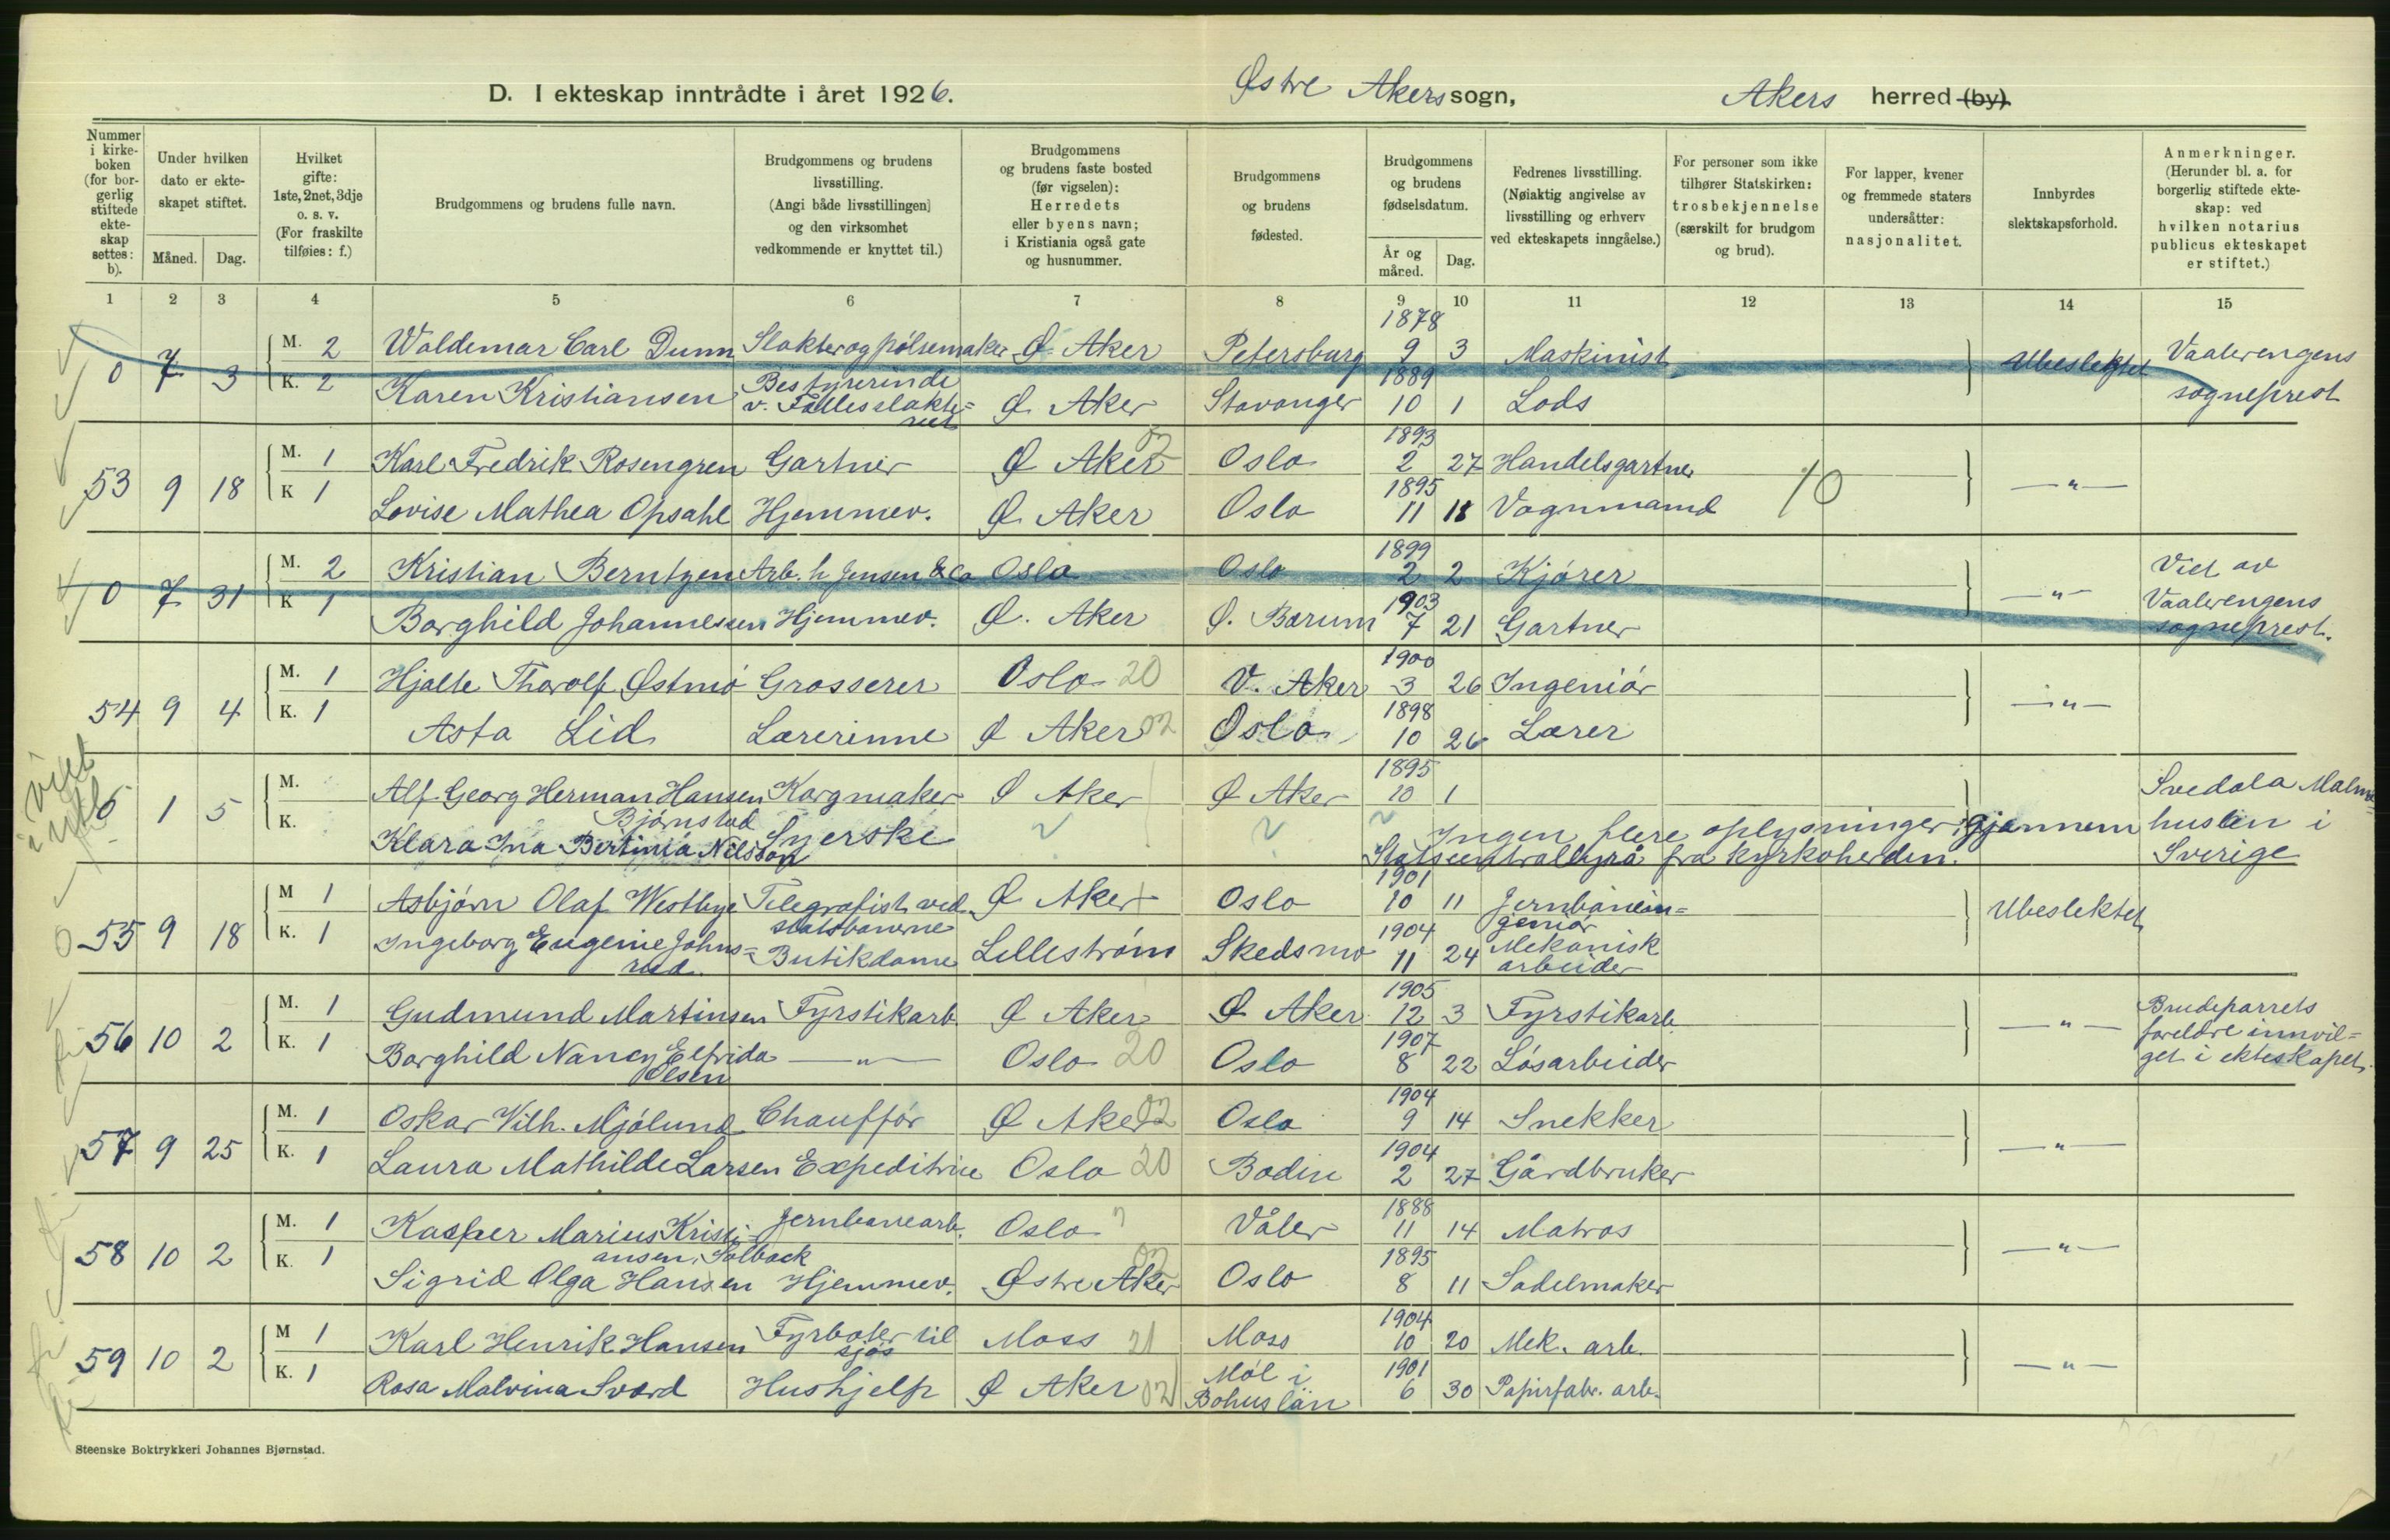 D. I ekteskap inntrådte i året 1926. Østre Akers sogn, Akers herred (by).
Nummer i kirkeboken (for borgerlig stiftede ekteskap settes: b).
Under hvilken dato er ekteskapet stiftet.
Måned. Dag.
Hvilket gifte: 1ste, 2net, 3dje o. s. v. (For fraskilte tilføies: f.)
Brudgommens og brudens fulle navn.
Brudgommens og brudens livsstilling. (Angi både livsstillingen og den virksomhet vedkommende er knyttet til.)
Brudgommens og brudens faste bosted (før vigselen): Herredets eller byens navn; i Kristiania også gate og husnummer.
Brudgommens og brudens fødested.
Brudgommens og brudens fødselsdatum.
År og måned. Dag.
Fedrenes livsstilling. (Nøiaktig angivelse av livsstilling og erhverv ved ekteskapets inngåelse.)
For personer som ikke tilhører Statskirken: trosbekjennelse (særskilt for brudgom og brud).
For lapper, kvener og fremmede staters undersåtter: nasjonalitet.
Innbyrdes slektskapsforhold.
Anmerkninger. (Herunder bl. a. for borgerlig stiftede ekteskap: ved hvilken notarius publicus ekteskapet er stiftet.)
1 2 3 4 5 6 7 8 9 10 11 12 13 14 15
0 7 3 M. 2 Waldemar Carl Dunn Slakter og pølsemaker Ø Aker Petersburg 1878 9 3 Maskinist Ubeslektet Vaalerengens sogneprest
K. 2 Karen Kristiansen Bestyrerinde v. Fællesslakteriet Ø. Aker Stavanger 1889 10 1 Lods
53 9 18 M. 1 Karl Fredrik Rosengren Gartner Ø Aker 02 Oslo 1893 2 27 Handelsgartner 10 —"—
K 1 Lovise Mathea Opsahl Hjemmev. Ø. Aker Oslo 1895 11 18 Vognmand
0 7 31 M. 2 Kristian Berntzen Arb. h. Jensen & Co Oslo Oslo 1899 2 2 Kjører —"— Viet av Vaalerengens sogneprest.
K 1 Borghild Johannessen Hjemmev. Ø. Aker Ø. Bærum 1903 7 21 Gartner
54 9 4 M. 1 Hjalte Thorolf Østmo Grosserer Oslo 20 V. Aker 1900 3 26 Ingeniør —"—
K. 1 Asta Lid Lærerinne Ø Aker 02 Oslo 1898 10 26 Lærer
6 1 5 M. Alf Georg Herman Hansen Bjørnstad Korgmaker Ø Aker Ø Aker 1895 10 1 Svedala Malmøhuslen i Sverige
K. Klara Ina Bertinia Nilsson Syerske Ingen flere oplysninger gjennem
Statscentralbyrå fra kyrkoherden.
55 9 18 M 1 Asbjørn Olaf Westbye Telegrafist ved statsbanerne Ø Aker Oslo 1901 10 11 Jernbaneingeniør Ubeslektet
K. 1 Ingeborg Eugenie Johnsrud Butikdame Lillestrøm Skedsmo 1904 11 24 Mekanisk arbeider
56 10 2 M. 1 Gudmund Martinsen Fyrstikarb. Ø Aker Ø Aker 1905 12 3 Fyrstikarb. —"— Brudeparrets foreldre innvilget i ekteskapet.
K. 1 Borghild Nancy Elfrida Olsen —"— Oslo 20 Oslo 1907 8 22 Løsarbeider
57 9 25 M. 1 Oskar Vilh. Mjølund Chauffør Ø Aker 02 Oslo 1904 9 14 Snekker —"—
K. 1 Laura Mathilde Larsen Expeditrice Oslo 20 Bodin 1904 2 27 Gårdbruker
58 10 2 M. 1 Kasper Marius Kristiansen Solback Jernbanearb. Oslo Våler 1888 11 14 Matros —"—
K. 1 Sigrid Olga Hansen Hjemmev. Østre Aker 02 Oslo 1895 8 11 Sadelmaker
59 10 2 M 1 Karl Henrik Hansen Fyrbøter til sjøs Moss 21 Moss 1904 10 20 Mek. arb. —"—
K. 1 Rosa Malvina Sværd Hushjelp Ø Aker 02 Møl i Bohuslän 1901 6 30 Papirfabr. arb.
Steenske Boktrykkeri Johannes Bjørnstad.